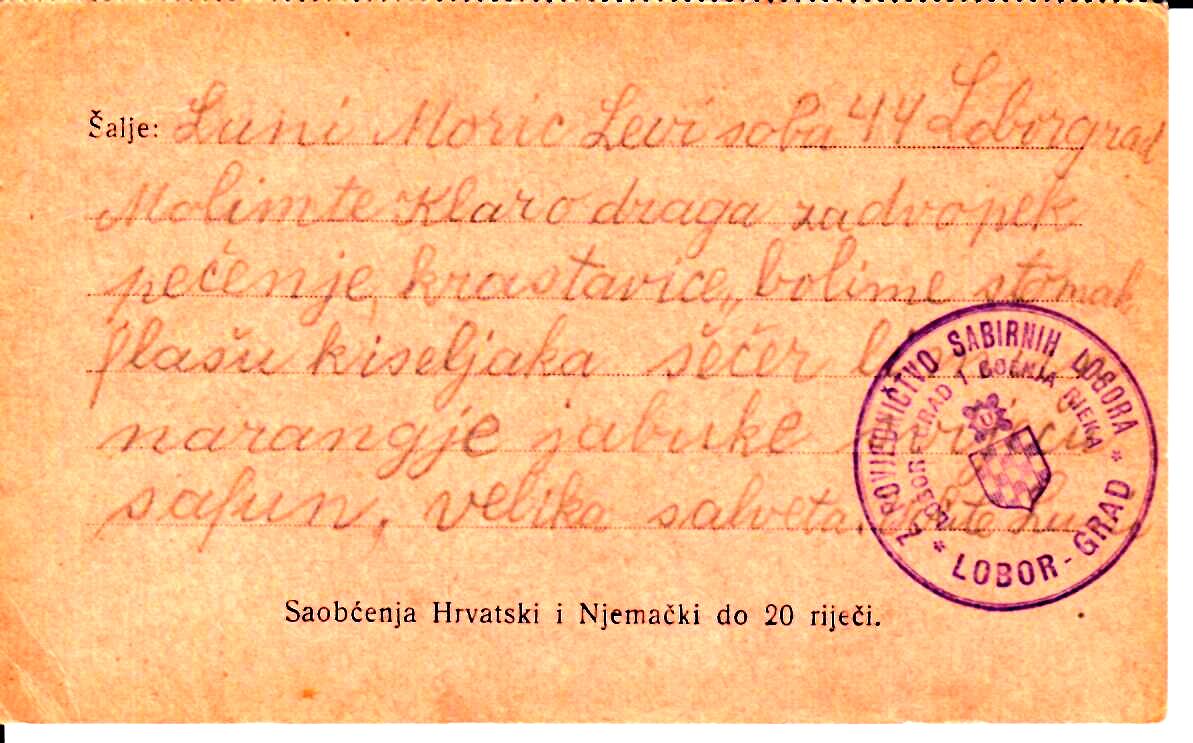 Šalje: Luni Moric Levi sob 44 Loborgrad
Molimte Klaro draga za dvopek
pečenje, krastavice, bolime stomak
flašu kiseljaka šečer
narangje jabuke
safun, velika salveta.
ZAPOVJEDNIČTVO SABIRNIH LOGORA
LOBORGRAD I GORNJA RIJEKA
* LOBOR-GRAD *
Saobćenja Hrvatski i Njemački do 20 riječi.